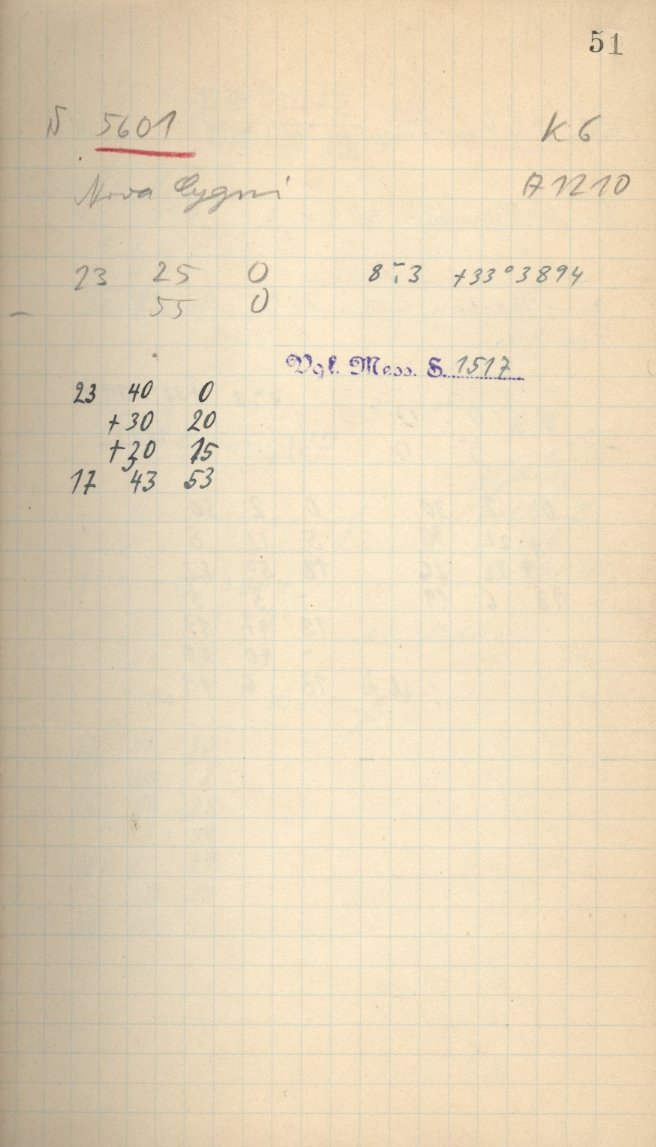 51
N 5601
K 6
Nova Cygni
A1210
23 25 0 8 3 +33°3894
– 55 0
Vgl. Mess. S. 1517
23 40 0
+30 20
+20 15
17 43 53